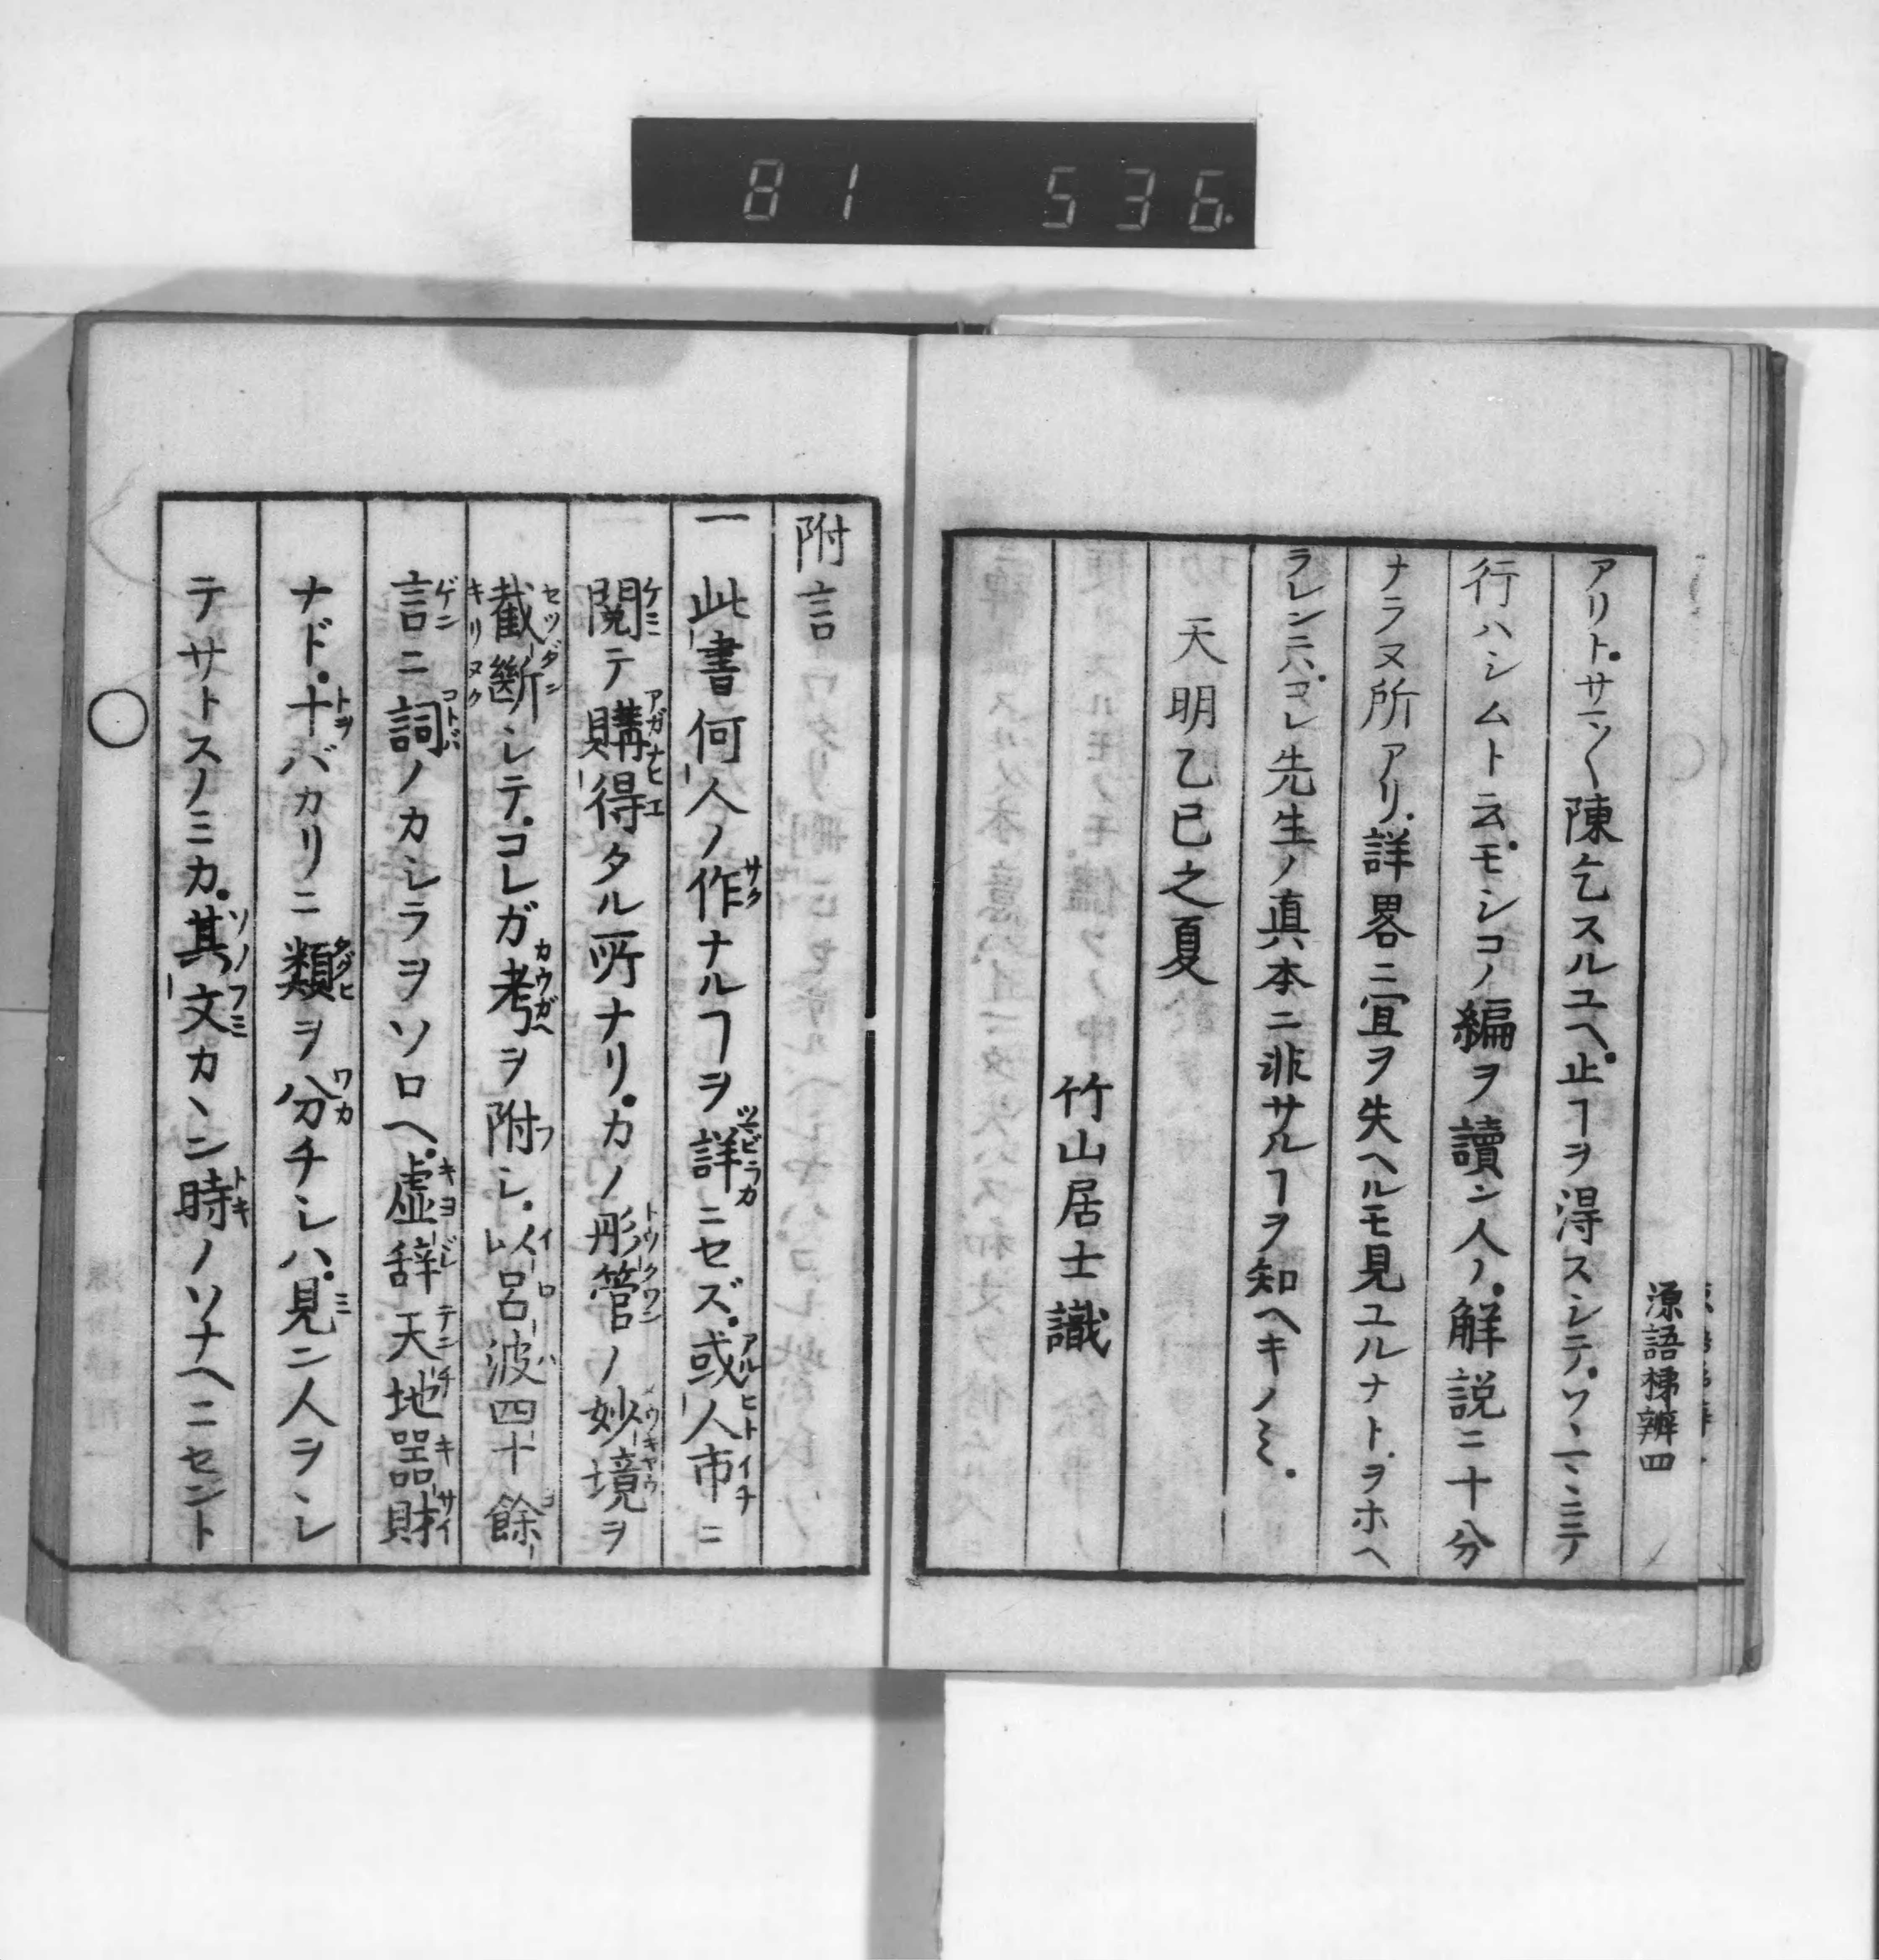 81 536
源語梯辨四
アリト。サマ〱陳乞スルユヘ。止ヿヲ得スシテ。ワヽマヽニテ
行ハシムト云。モシコノ編ヲ讀ン人ノ。解説ニ十分
ナラヌ所アリ。詳畧ニ宜ヲ失ヘルモ見ユルナト。ヲホヘ
ラレンニハ。コレ先生ノ真本ニ非サルヿヲ知ヘキノミ。
天明乙巳之夏
竹山居士識
附言
一 此書何人ノ作ナルヿヲ詳ニセズ。或人市ニ
閲テ購得タル所ナリ。カノ彤管ノ妙境ヲ
截斷シテ。コレガ考ヲ附シ。以呂波四十餘
言ニ詞ノカシラヲソロヘ。虚辞天地器財
ナド。十バカリニ類ヲ分チシハ。見ン人ヲシ
テサトスノミカ。其文カヽン時ノソナヘニセント